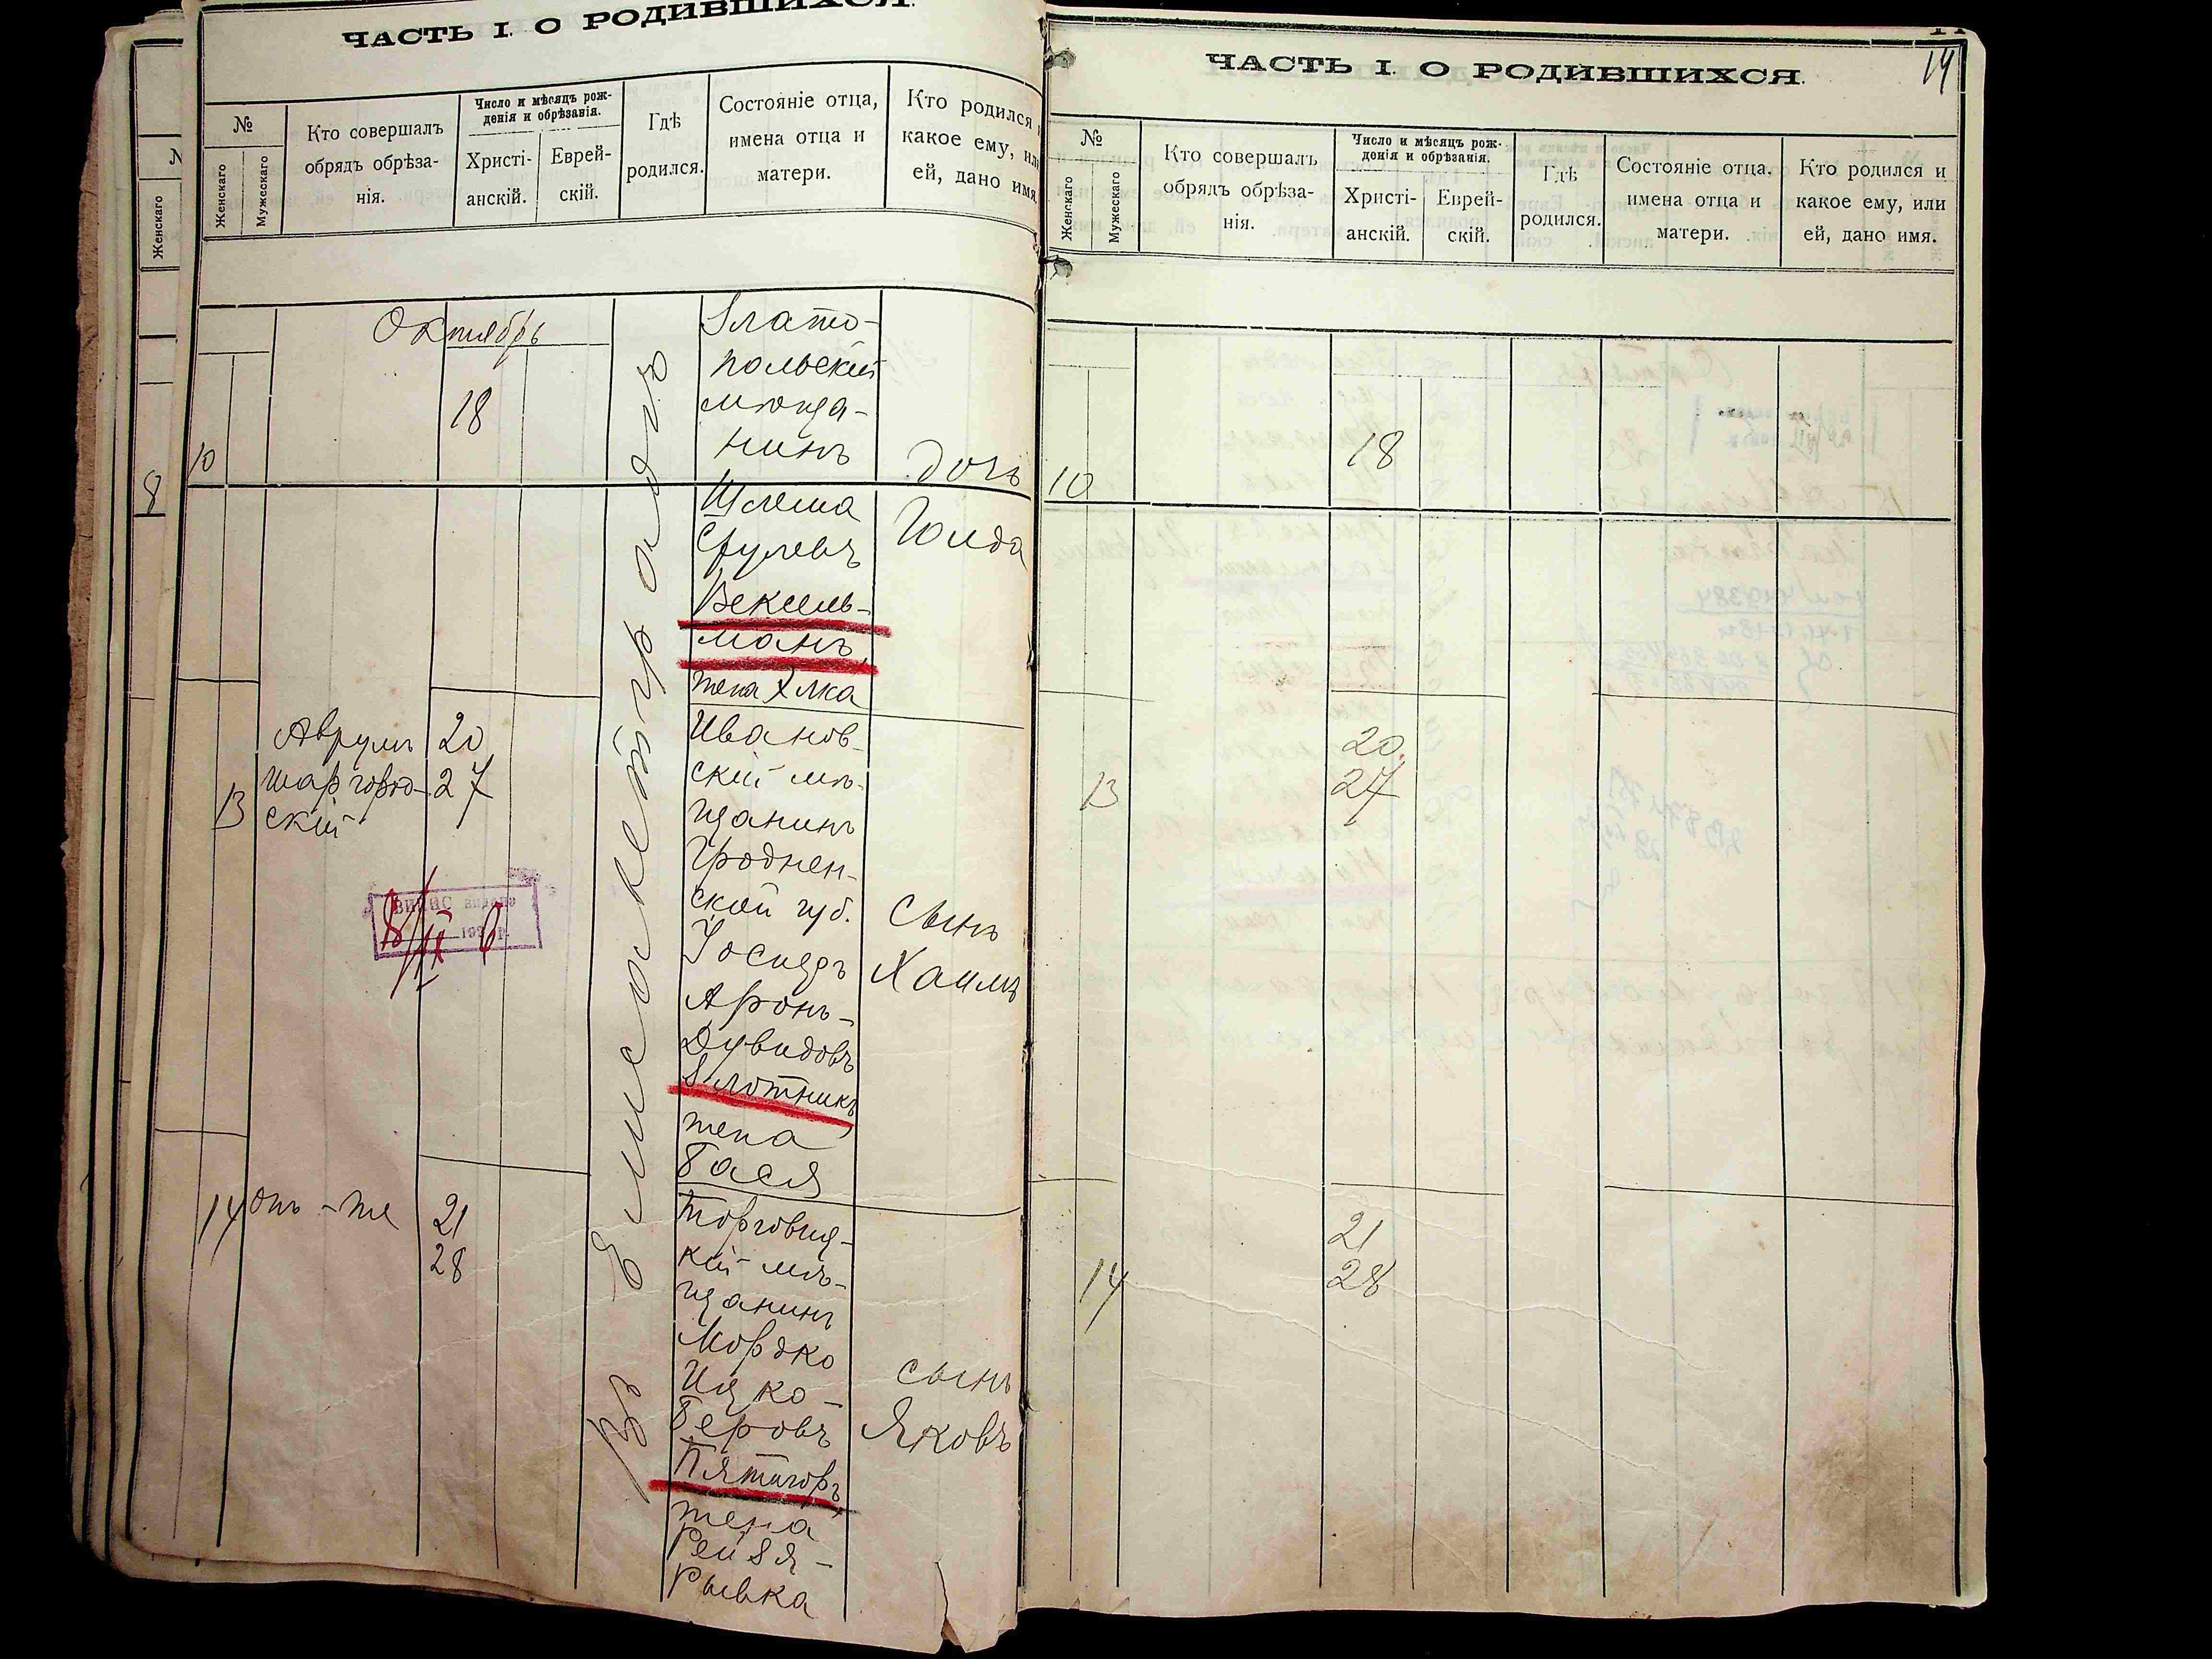 ЧАСТЬ I. О РОДИВШИХСЯ.
№
Женскаго
Мужескаго
Кто совершалъ
обрядъ обрѣза-
нія.
Число и мѣсяцъ рож-
денія и обрѣзанія.
Христі-
анскій.
Еврей-
скій.
Гдѣ
родился.
Состояніе отца,
имена отца и
матери.
Кто родился и
какое ему, или
ей, дано имя.
Октябрь
10
18
Злато-
польскій
мѣща-
нинъ
Шлема
Срулевъ
Вексель-
манъ,
жена Элка
дочь
Голда
Въ Елисаветградѣ
13
Аврумъ
Шаргород-
скій
20
27
Иванов-
скій мѣ-
щанинъ
Гроднен-
ской губ.
Іосифъ
Аронъ-
Дувидовъ
Злотникъ,
жена
Бася
сынъ
Хаимъ
14
онъ-же
21
28
Торговиц-
кій мѣ-
щанинъ
Мордко
Ицко-
Беровъ
Пятигоръ,
жена
Рейзя-
Рывка
сынъ
Яковъ
14
ЧАСТЬ I. О РОДИВШИХСЯ.
№
Женскаго
Мужескаго
Кто совершалъ
обрядъ обрѣза-
нія.
Число и мѣсяцъ рож-
денія и обрѣзанія.
Христі-
анскій.
Еврей-
скій.
Гдѣ
родился.
Состояніе отца,
имена отца и
матери.
Кто родился и
какое ему, или
ей, дано имя.
10
18
13
20
27
14
21
28
№
Женскаго
8